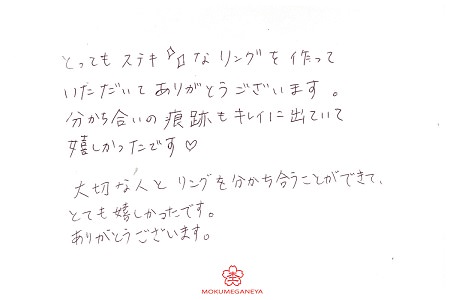 とってもステキなリングを作って
いただいてありがとうございます。
分かち合いの痕跡もキレイに出ていて
嬉しかったです♡
大切な人とリングを分かち合うことができて、
とても嬉しかったです。
ありがとうございます。
MOKUMEGANEYA